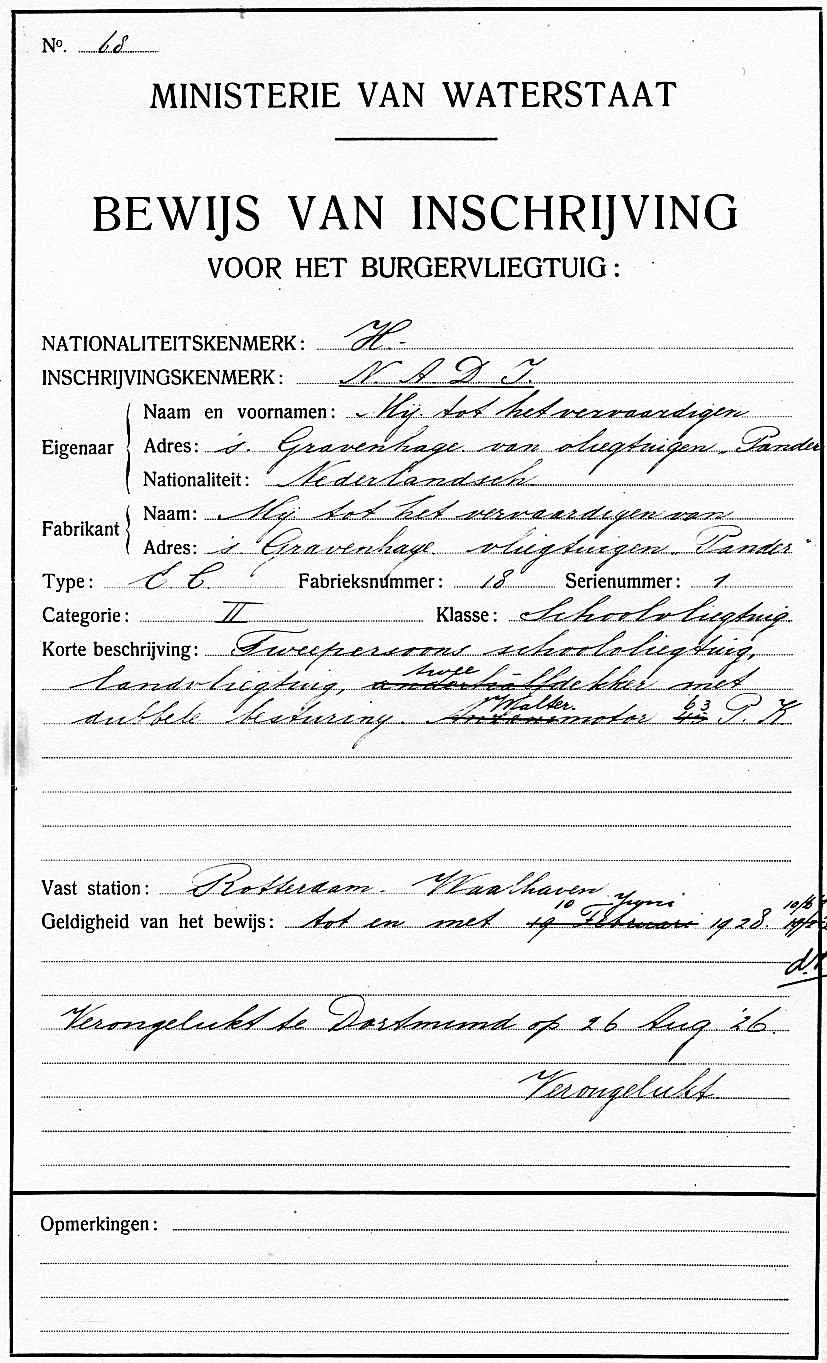 No. 68
MINISTERIE VAN WATERSTAAT
BEWIJS VAN INSCHRIJVING
VOOR HET BURGERVLIEGTUIG:
NATIONALITEITSKENMERK: H.-
INSCHRIJVINGSKENMERK: N. A D I.
Eigenaar
Naam en voornamen: Mij. tot het vervaardigen
Adres: 's. Gravenhage van vliegtuigen „Pander
Nationaliteit: Nederlandsch
Fabrikant
Naam: Mij tot het vervaardigen van
Adres: 's Gravenhage vliegtuigen „Pander"
Type: E C. Fabrieksnummer: 18 Serienummer: 1
Categorie: II Klasse: Schoolvliegtuig
Korte beschrijving: Tweepersoons schoolvliegtuig,
twee
landvliegtuig, anderhalfdekker met
Walter. 63
dubbele besturing. motor 45 P. K
Vast station: Rotterdam. Waalhaven
10 Juni
Geldigheid van het bewijs: tot en met 19 Februari 1928.
Verongelukt te Dortmund op 26 Aug '26.
Verongelukt.
Opmerkingen: